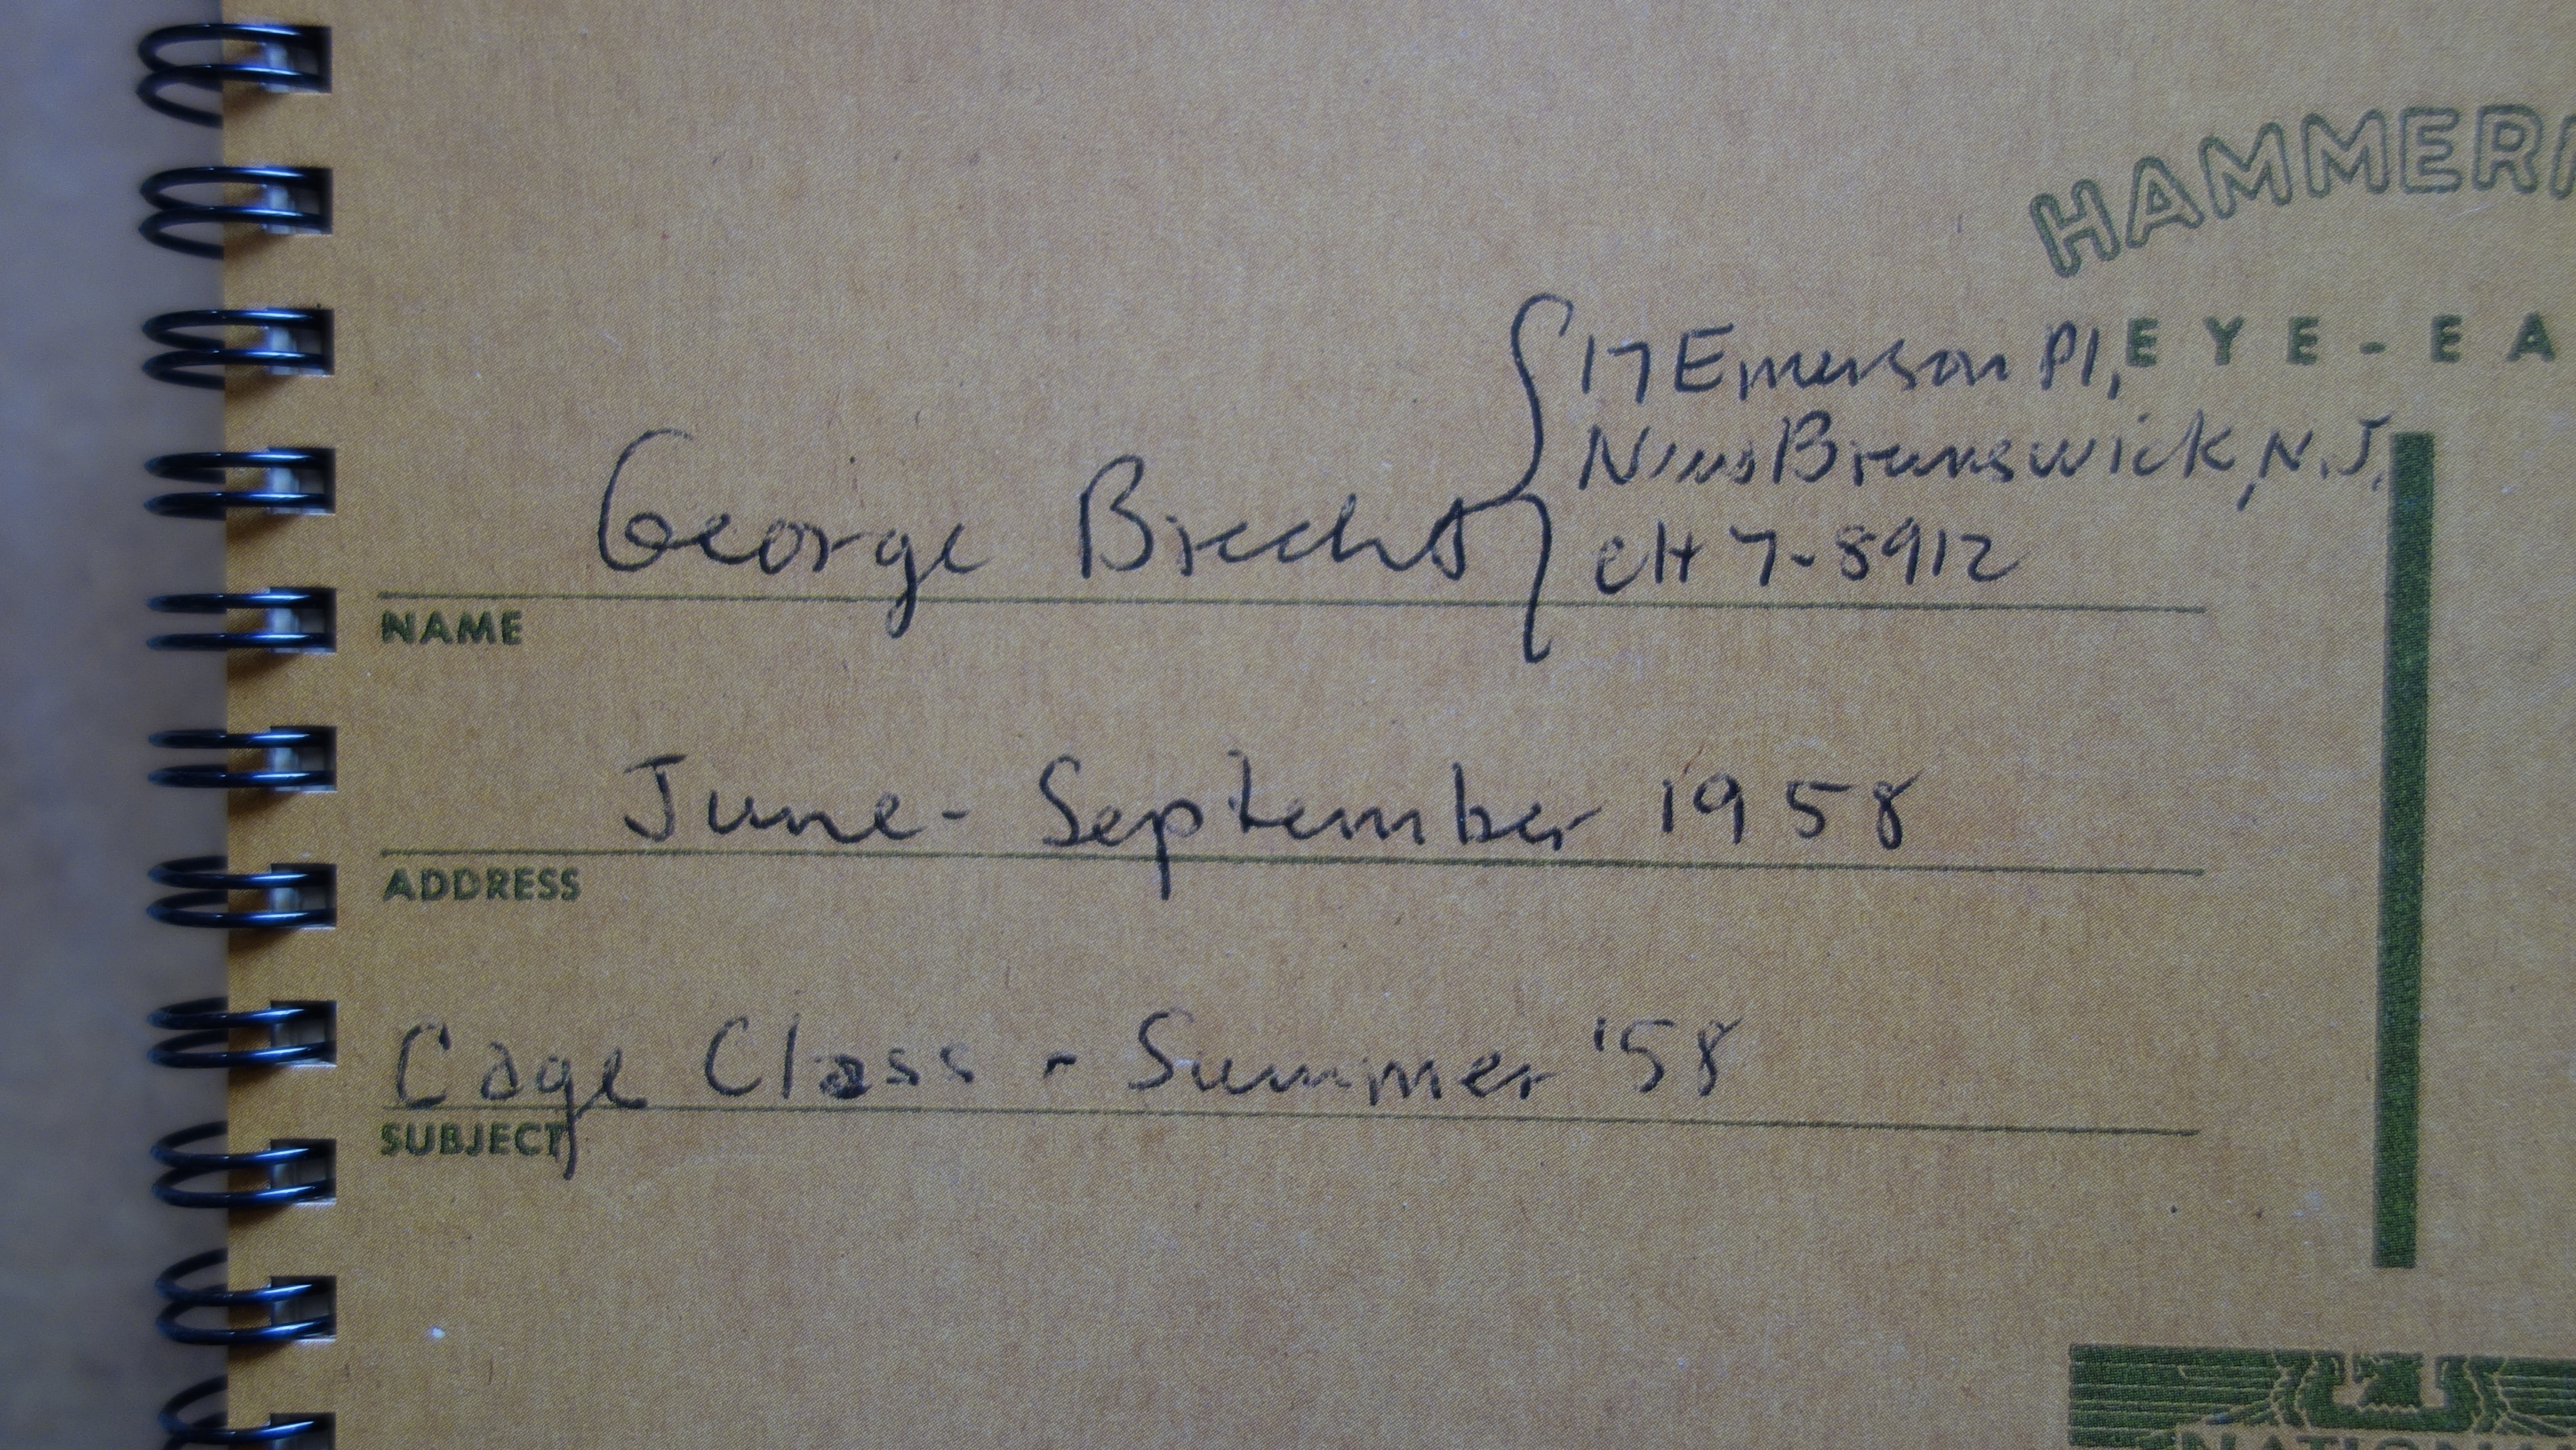 HAMMER
EYE-EA
17 Emerson Pl,
New Brunswick, N.J.
George Brecht
CH 7-8912
NAME
June - September 1958
ADDRESS
Cage Class - Summer '58
SUBJECT